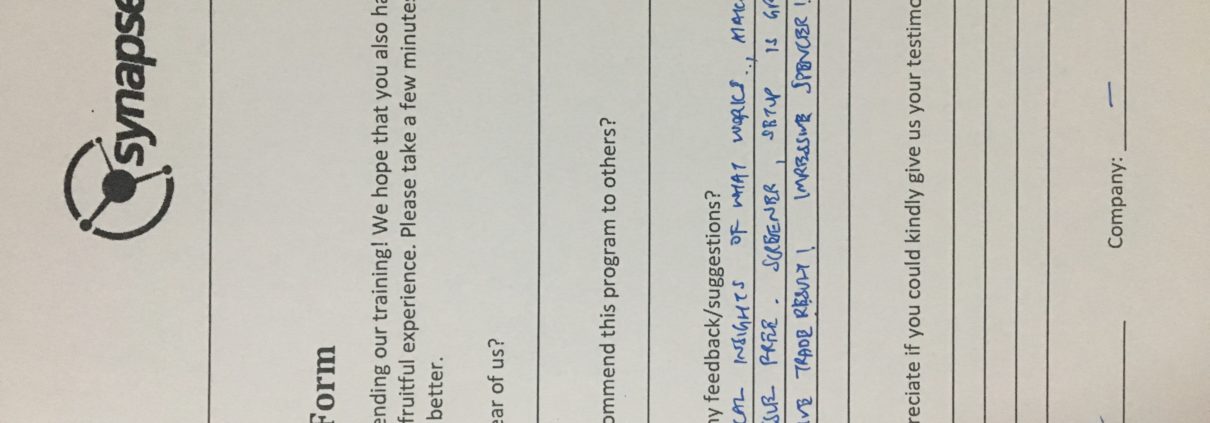 synapse
Form
ending our training! We hope that you also ha
fruitful experience. Please take a few minute
better.
ear of us?
ommend this program to others?
ny feedback/suggestions?
CAL INSIGHTS OF WHAT WORKS.., MAK
SCREENER, SETUP IS GR
TRADE RESULT! IMPRESSIVE SPENCER!
reciate if you could kindly give us your testimo
Company: —